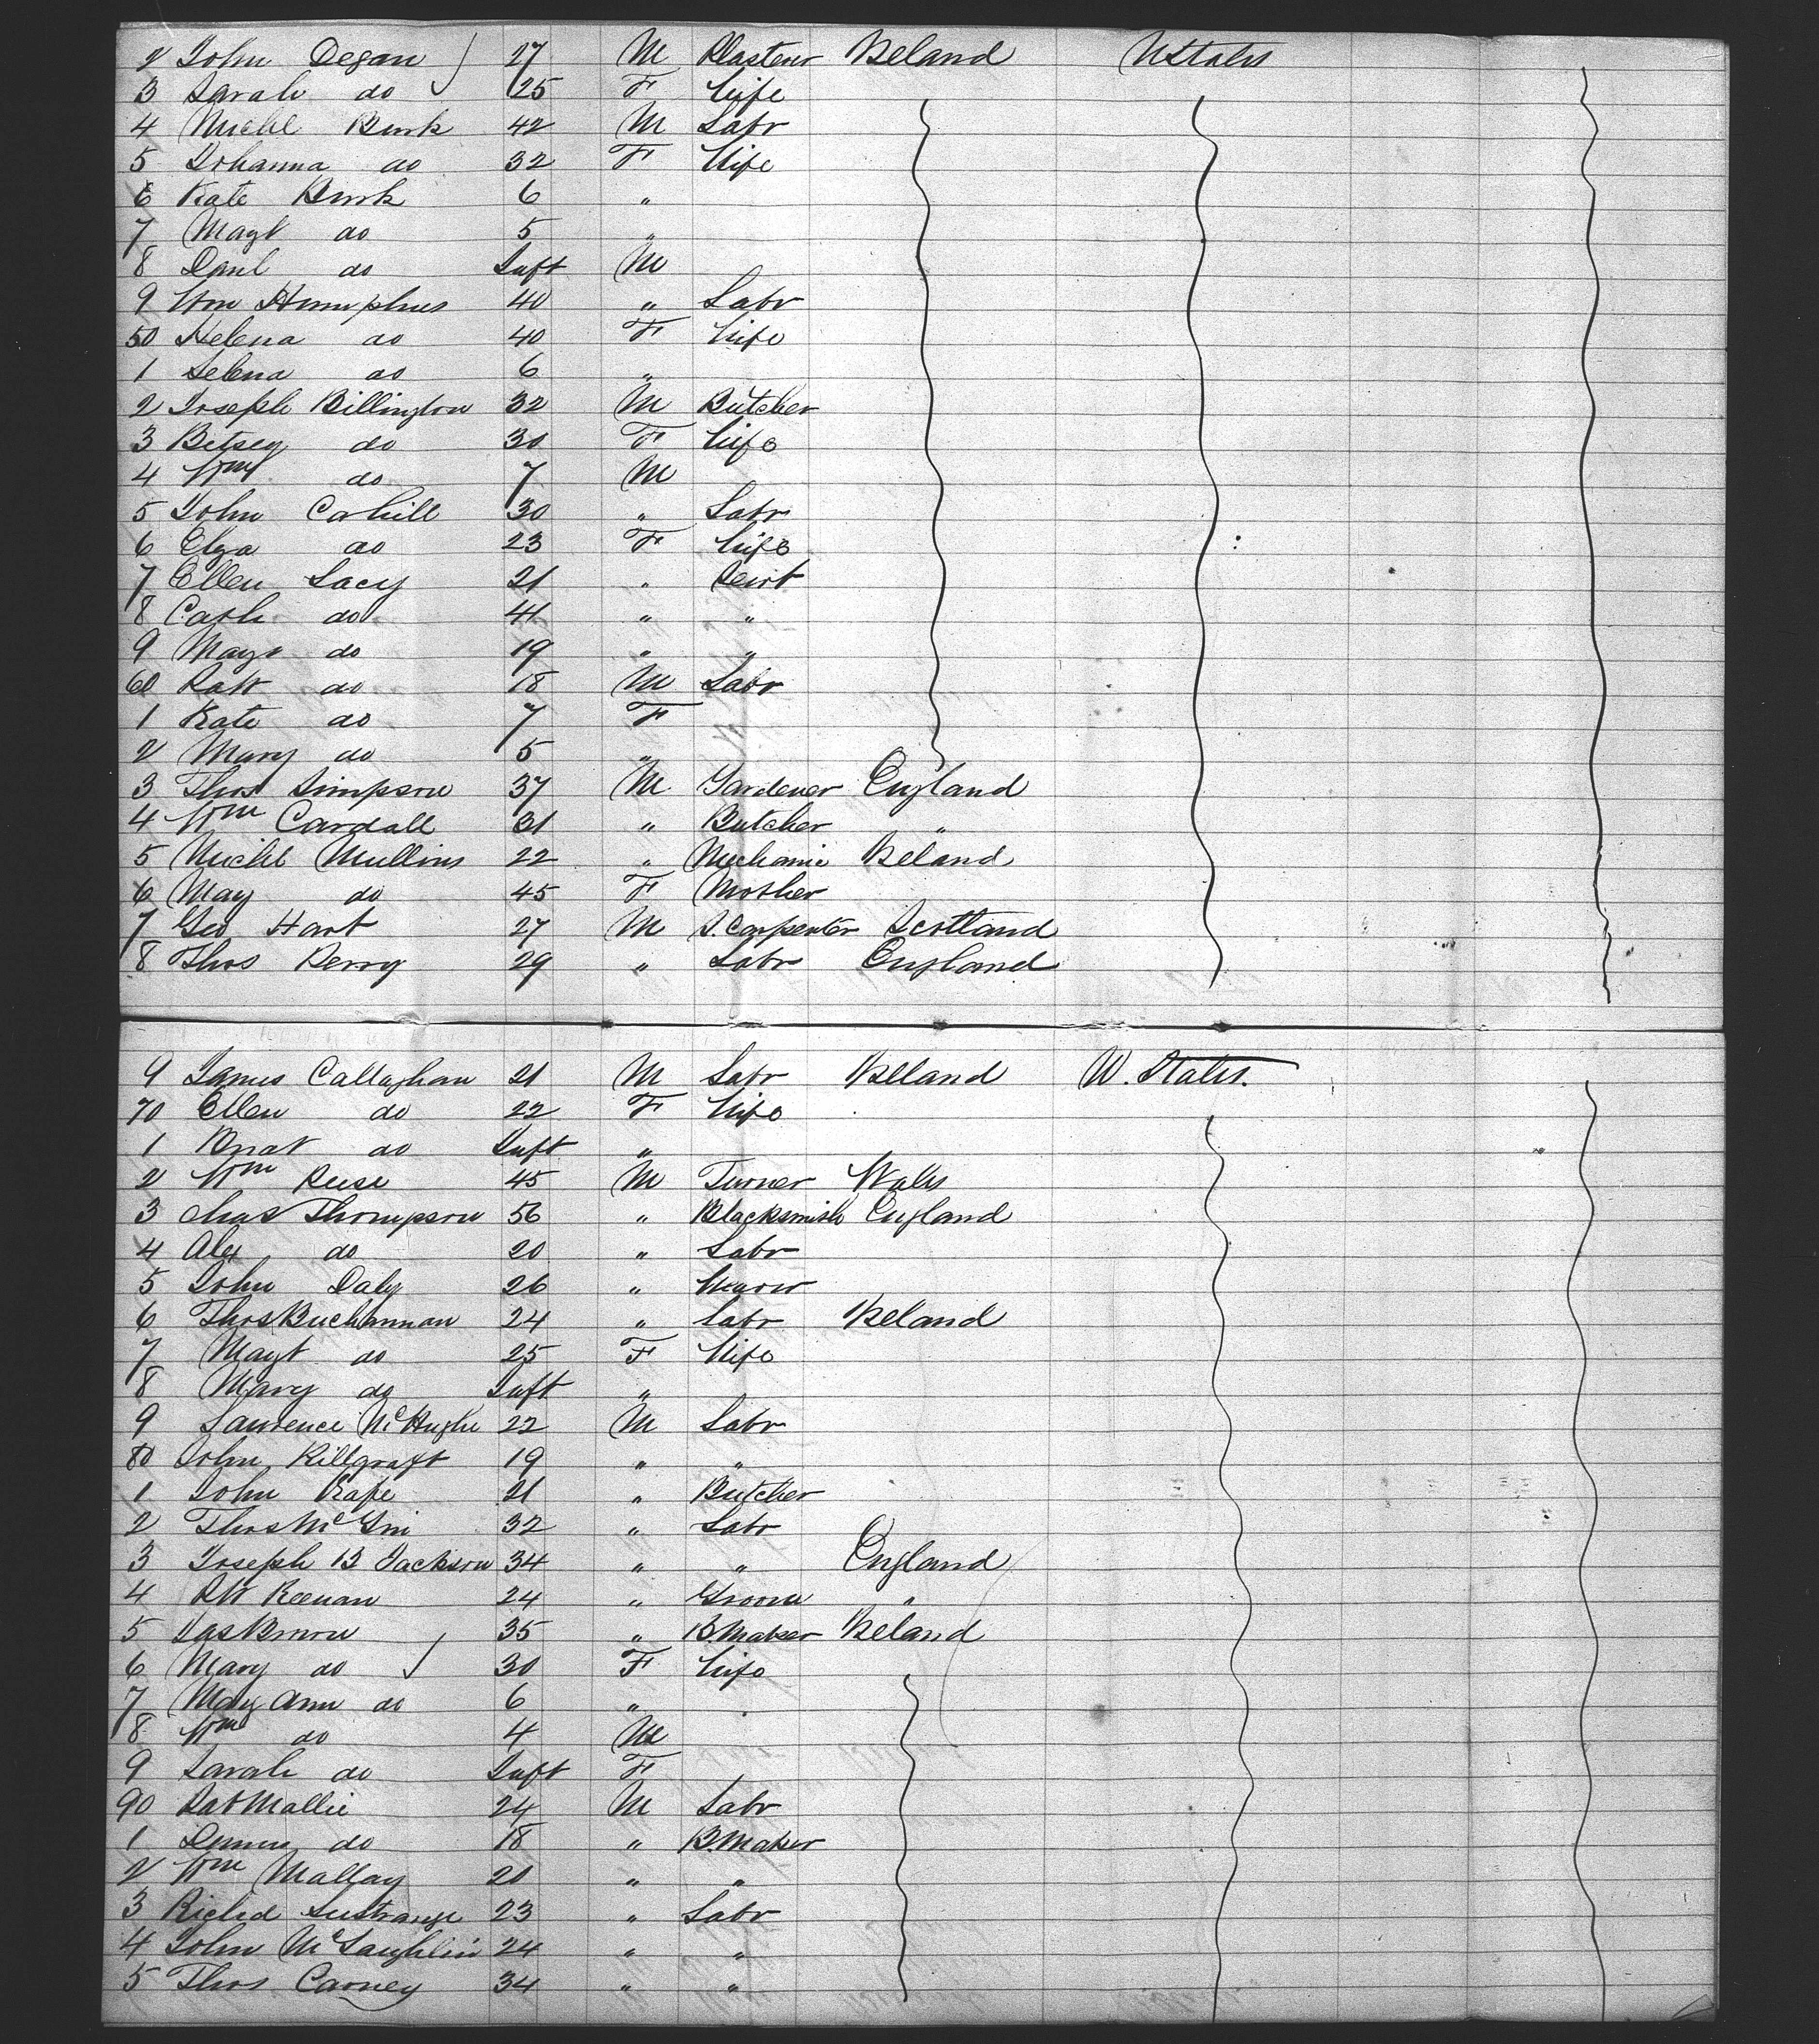 2 John Degan 27 M Plasterer Ireland UStates
3 Sarah do 25 F Wife
4 Michl Burk 42 M Labr
5 Johanna do 32 F Wife
6 Kate Burk 6 "
7 Magt do 5 "
8 Danl do Inft M
9 Wm Humphries 40 " Labr
50 Helena do 40 F Wife
1 Selena do 6 "
2 Joseph Billington 32 M Butcher
3 Betsey do 30 F Wife
4 Wm do 7 M
5 John Cahill 30 " Labr
6 Elza do 23 F Wife
7 Ellen Lacy 21 " Servt
8 Cath do 41 " "
9 Magt do 19 " "
60 Patt do 18 M Labr
1 Kate do 7 F
2 Mary do 5 "
3 Thos Simpson 37 M Gardener England
4 Wm Cardall 31 " Butcher "
5 Michl Mullins 22 " Mechanic Ireland
6 May do 45 F Mother
7 Geo Hart 27 M S. Carpenter Scotland
8 Thos Perry 29 " Labr England
9 James Callaghan 21 M Labr Ireland U. States.
70 Ellen do 22 F Wife
1 do Inft "
2 Wm Reese 45 M Turner Wales
3 Chas Thompson 56 " Blacksmith England
4 Alex do 20 " Labr
5 John Daly 26 " Weaver
6 Thos Buchannan 24 " Labr Ireland
7 Magt do 25 F Wife
8 Mary do Inft "
9 Lawrence McHughe 22 M Labr
80 John Killgraft 19 " "
1 John 21 " Butcher
2 Thos 32 " Labr
3 Joseph B Jackson 34 " " England
4 Patt Keenan 24 " Groom "
5 Jas Brown 35 " B. Maker Ireland
6 Mary do 30 F Wife
7 May Ann do 6 "
8 Wm do 4 M
9 Sarah do Inft F
90 Pat Mallie 24 M Labr
1 do 18 " B. Maker
2 Wm Mallay 20 " "
3 Richd Lestrange 23 " Labr
4 John McLaughlin 24 " "
5 Thos Carney 34 " "